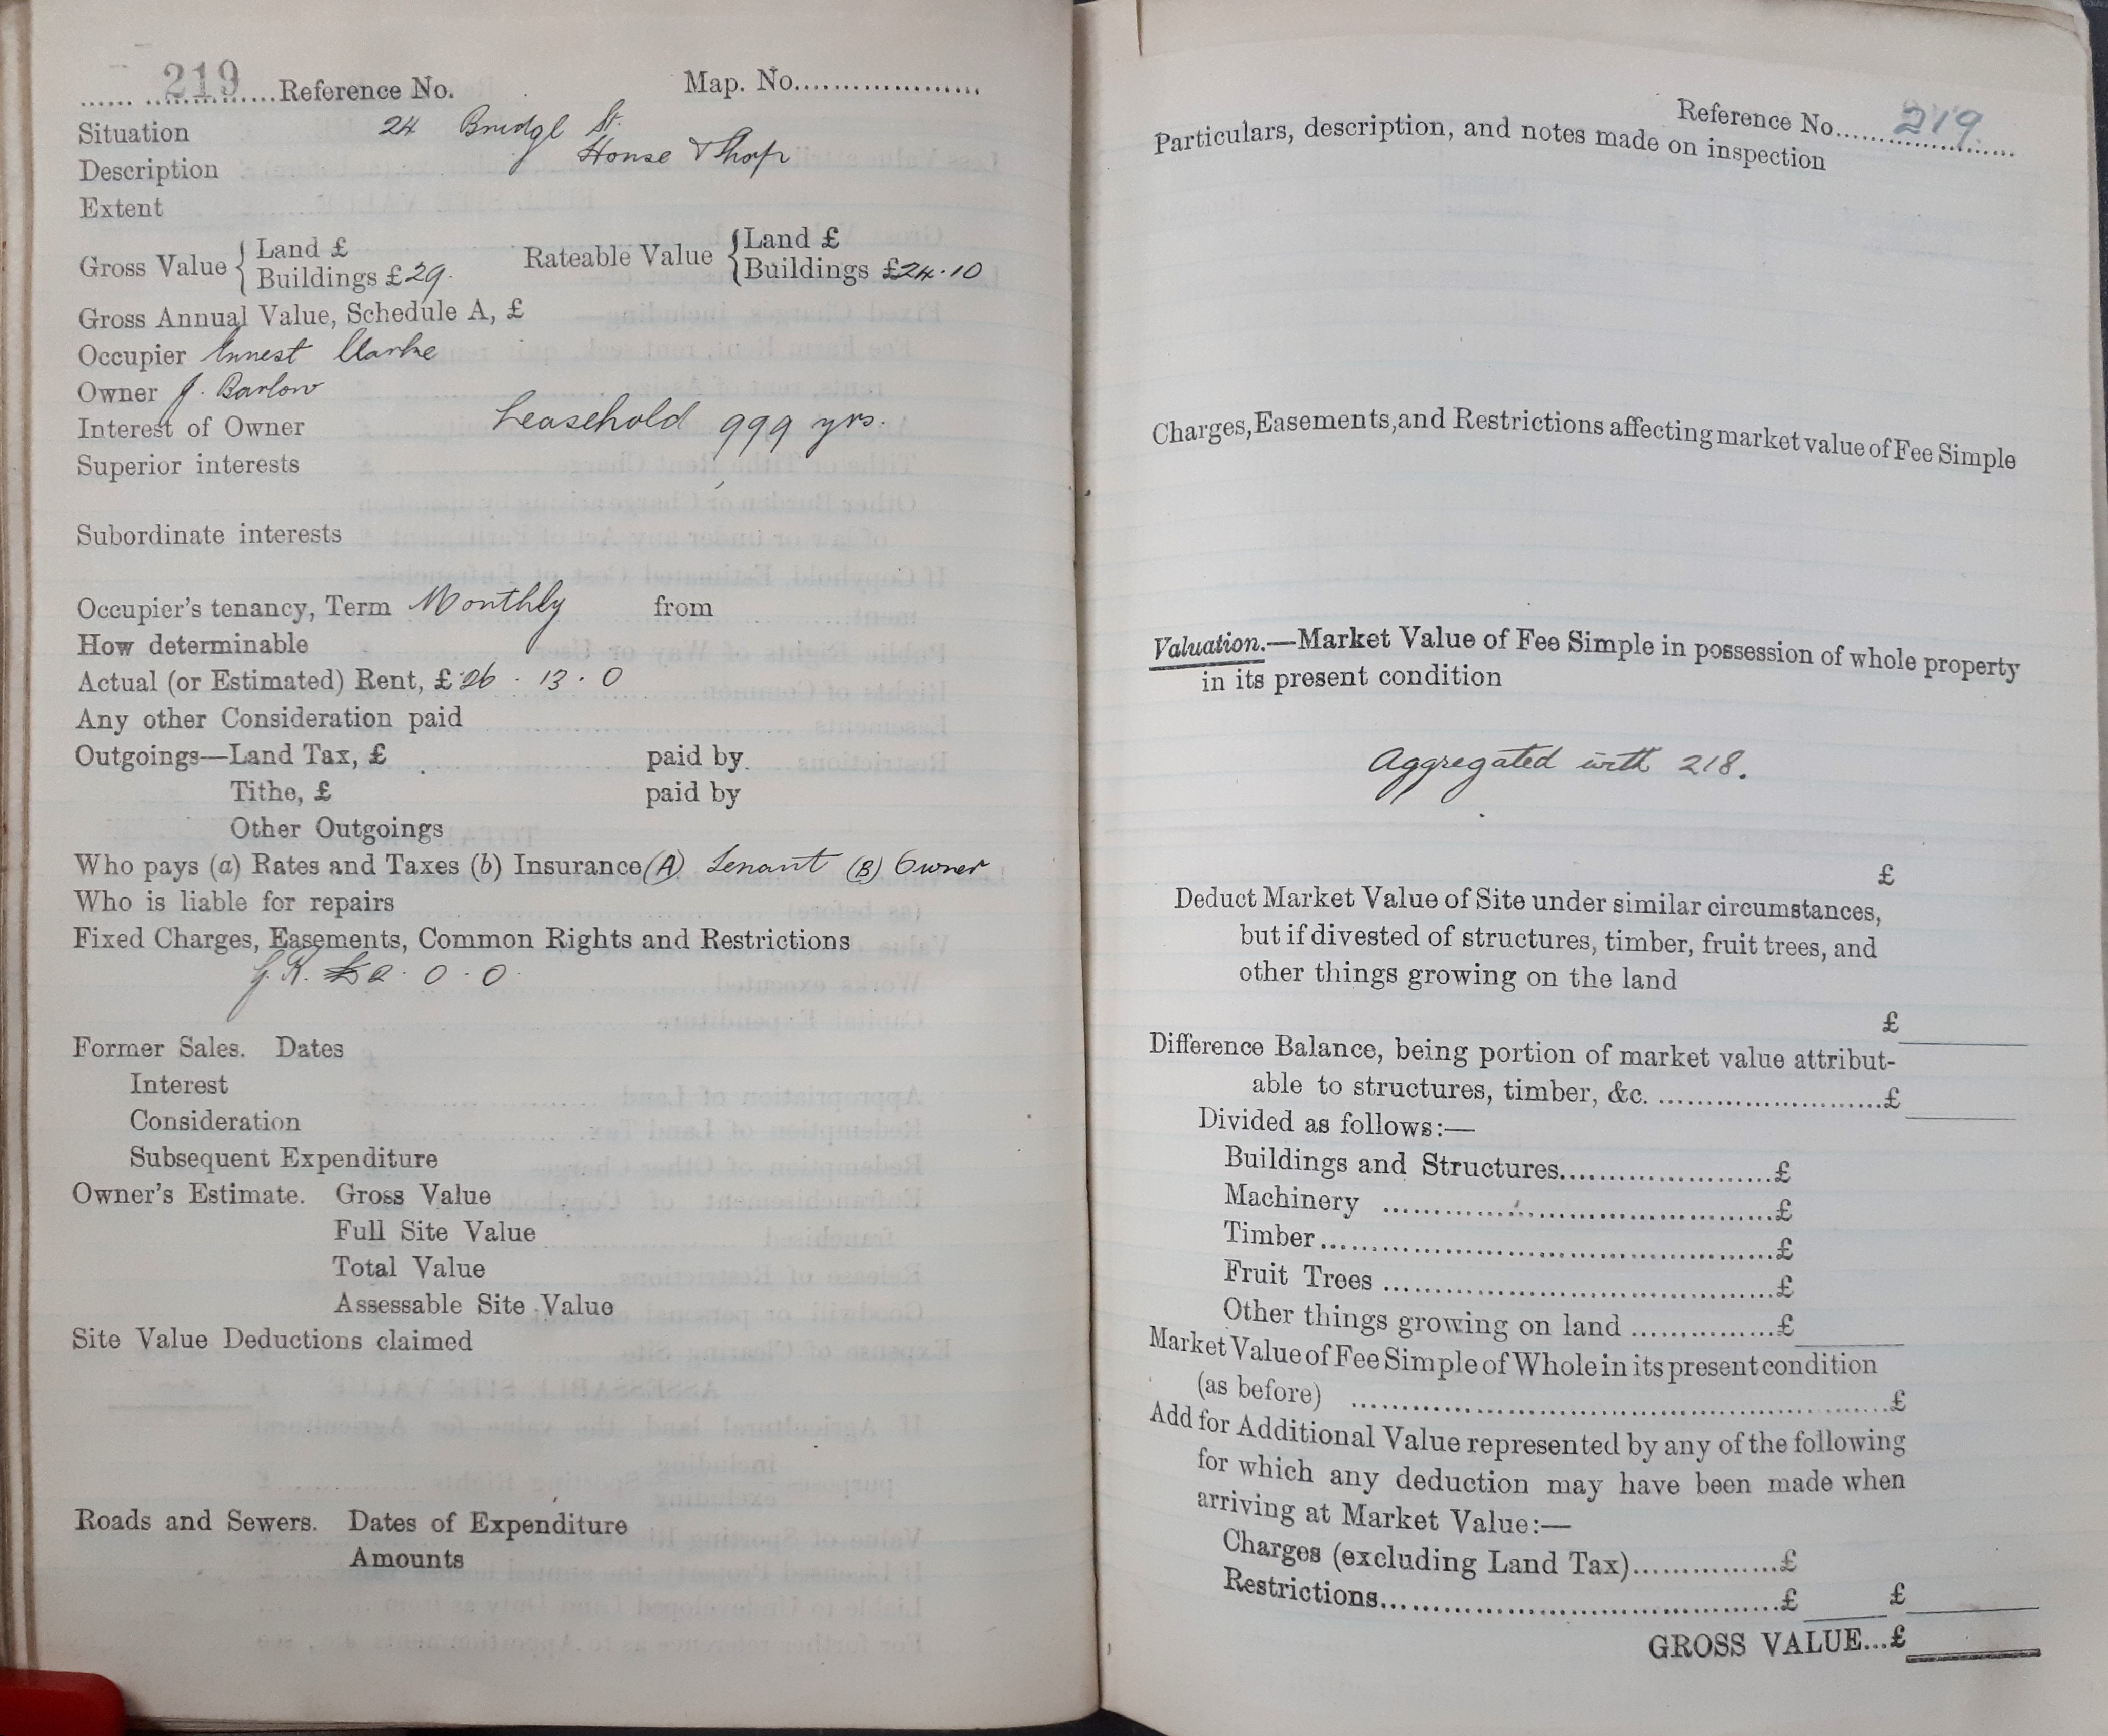 219 Reference No. Map. No.
Situation 24 Bridge St.
Description House & Shop
Extent
Gross Value { Land £
Buildings £29. Rateable Value { Land £
Buildings £24.10
Gross Annual Value, Schedule A, £
Occupier Ernest Clarke
Owner J. Barlow
Interest of Owner Leasehold 999 yrs.
Superior interests
Subordinate interests
Occupier's tenancy, Term Monthly from
How determinable
Actual (or Estimated) Rent, £26 . 13 . 0
Any other Consideration paid
Outgoings—Land Tax, £ paid by
Tithe, £ paid by
Other Outgoings
Who pays (a) Rates and Taxes (b) Insurance (A) Tenant (B) Owner
Who is liable for repairs
Fixed Charges, Easements, Common Rights and Restrictions
G.R. £2 . 0 . 0
Former Sales. Dates
Interest
Consideration
Subsequent Expenditure
Owner's Estimate. Gross Value
Full Site Value
Total Value
Assessable Site Value
Site Value Deductions claimed
Roads and Sewers. Dates of Expenditure
Amounts
Reference No. 219.
Particulars, description, and notes made on inspection
Charges, Easements, and Restrictions affecting market value of Fee Simple
Valuation.—Market Value of Fee Simple in possession of whole property
in its present condition
Aggregated with 218.
£
Deduct Market Value of Site under similar circumstances,
but if divested of structures, timber, fruit trees, and
other things growing on the land
£
Difference Balance, being portion of market value attribut-
able to structures, timber, &c. £
Divided as follows:—
Buildings and Structures £
Machinery £
Timber £
Fruit Trees £
Other things growing on land £
Market Value of Fee Simple of Whole in its present condition
(as before) £
Add for Additional Value represented by any of the following
for which any deduction may have been made when
arriving at Market Value:—
Charges (excluding Land Tax) £
Restrictions £ £
GROSS VALUE...£